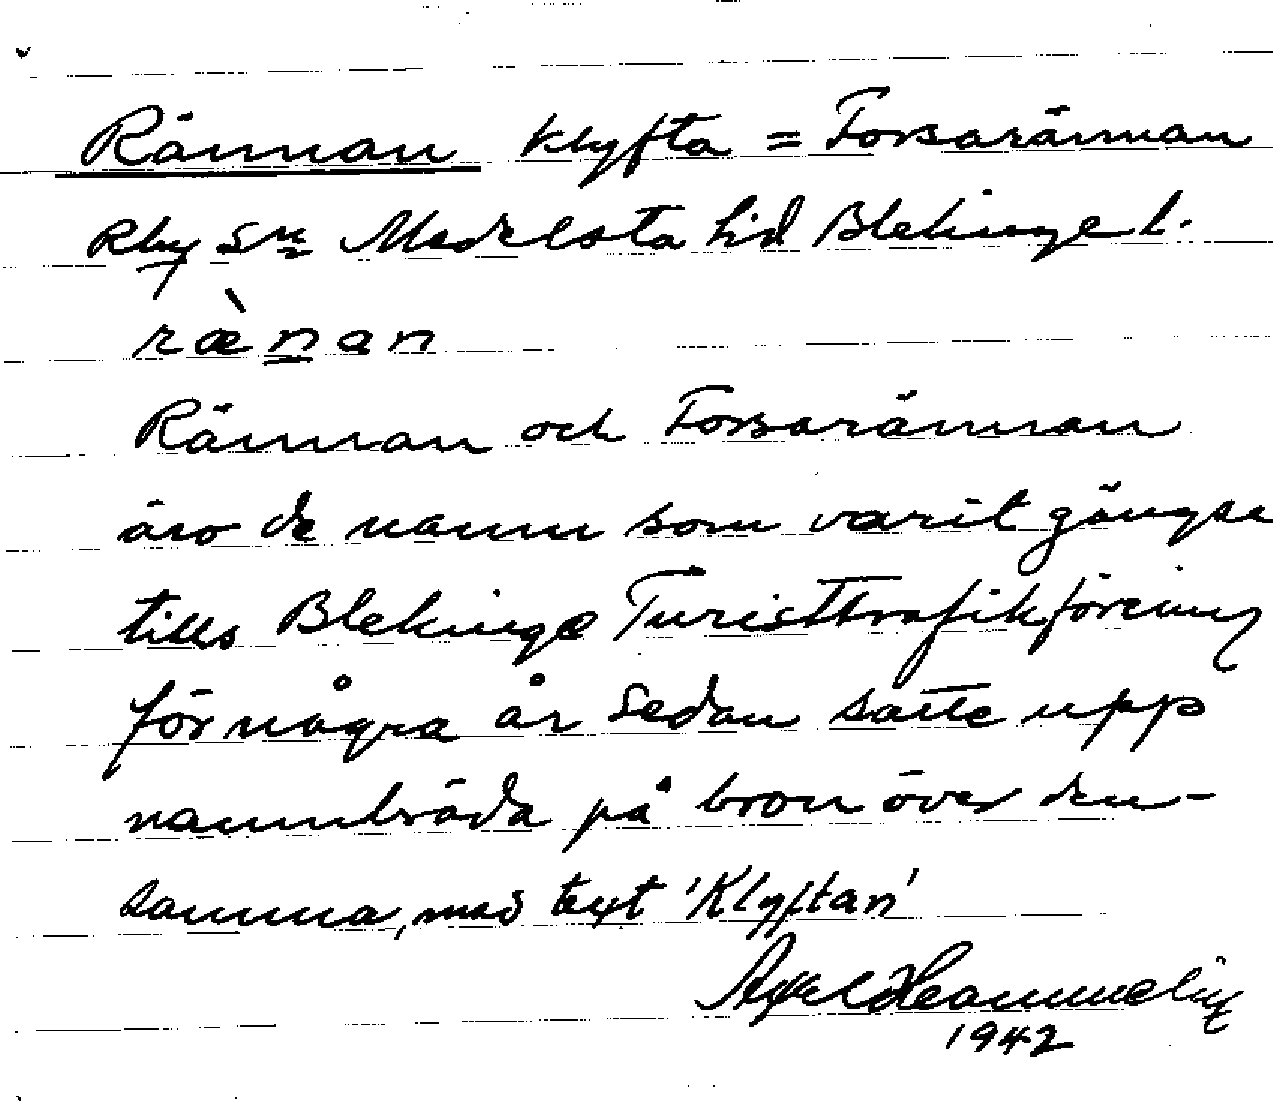 Rännan klyfta = Forsarännan
Rby sn Medelsta hd Blekinge l.
ræ̀nan
Rännan och Forsarännan
äro de namn som varit gängse
tills Blekinge Turisttrafikförening
för några år sedan satte upp
namnbräda på bron över den-
samma, med text 'Klyftan'
Axel
1942